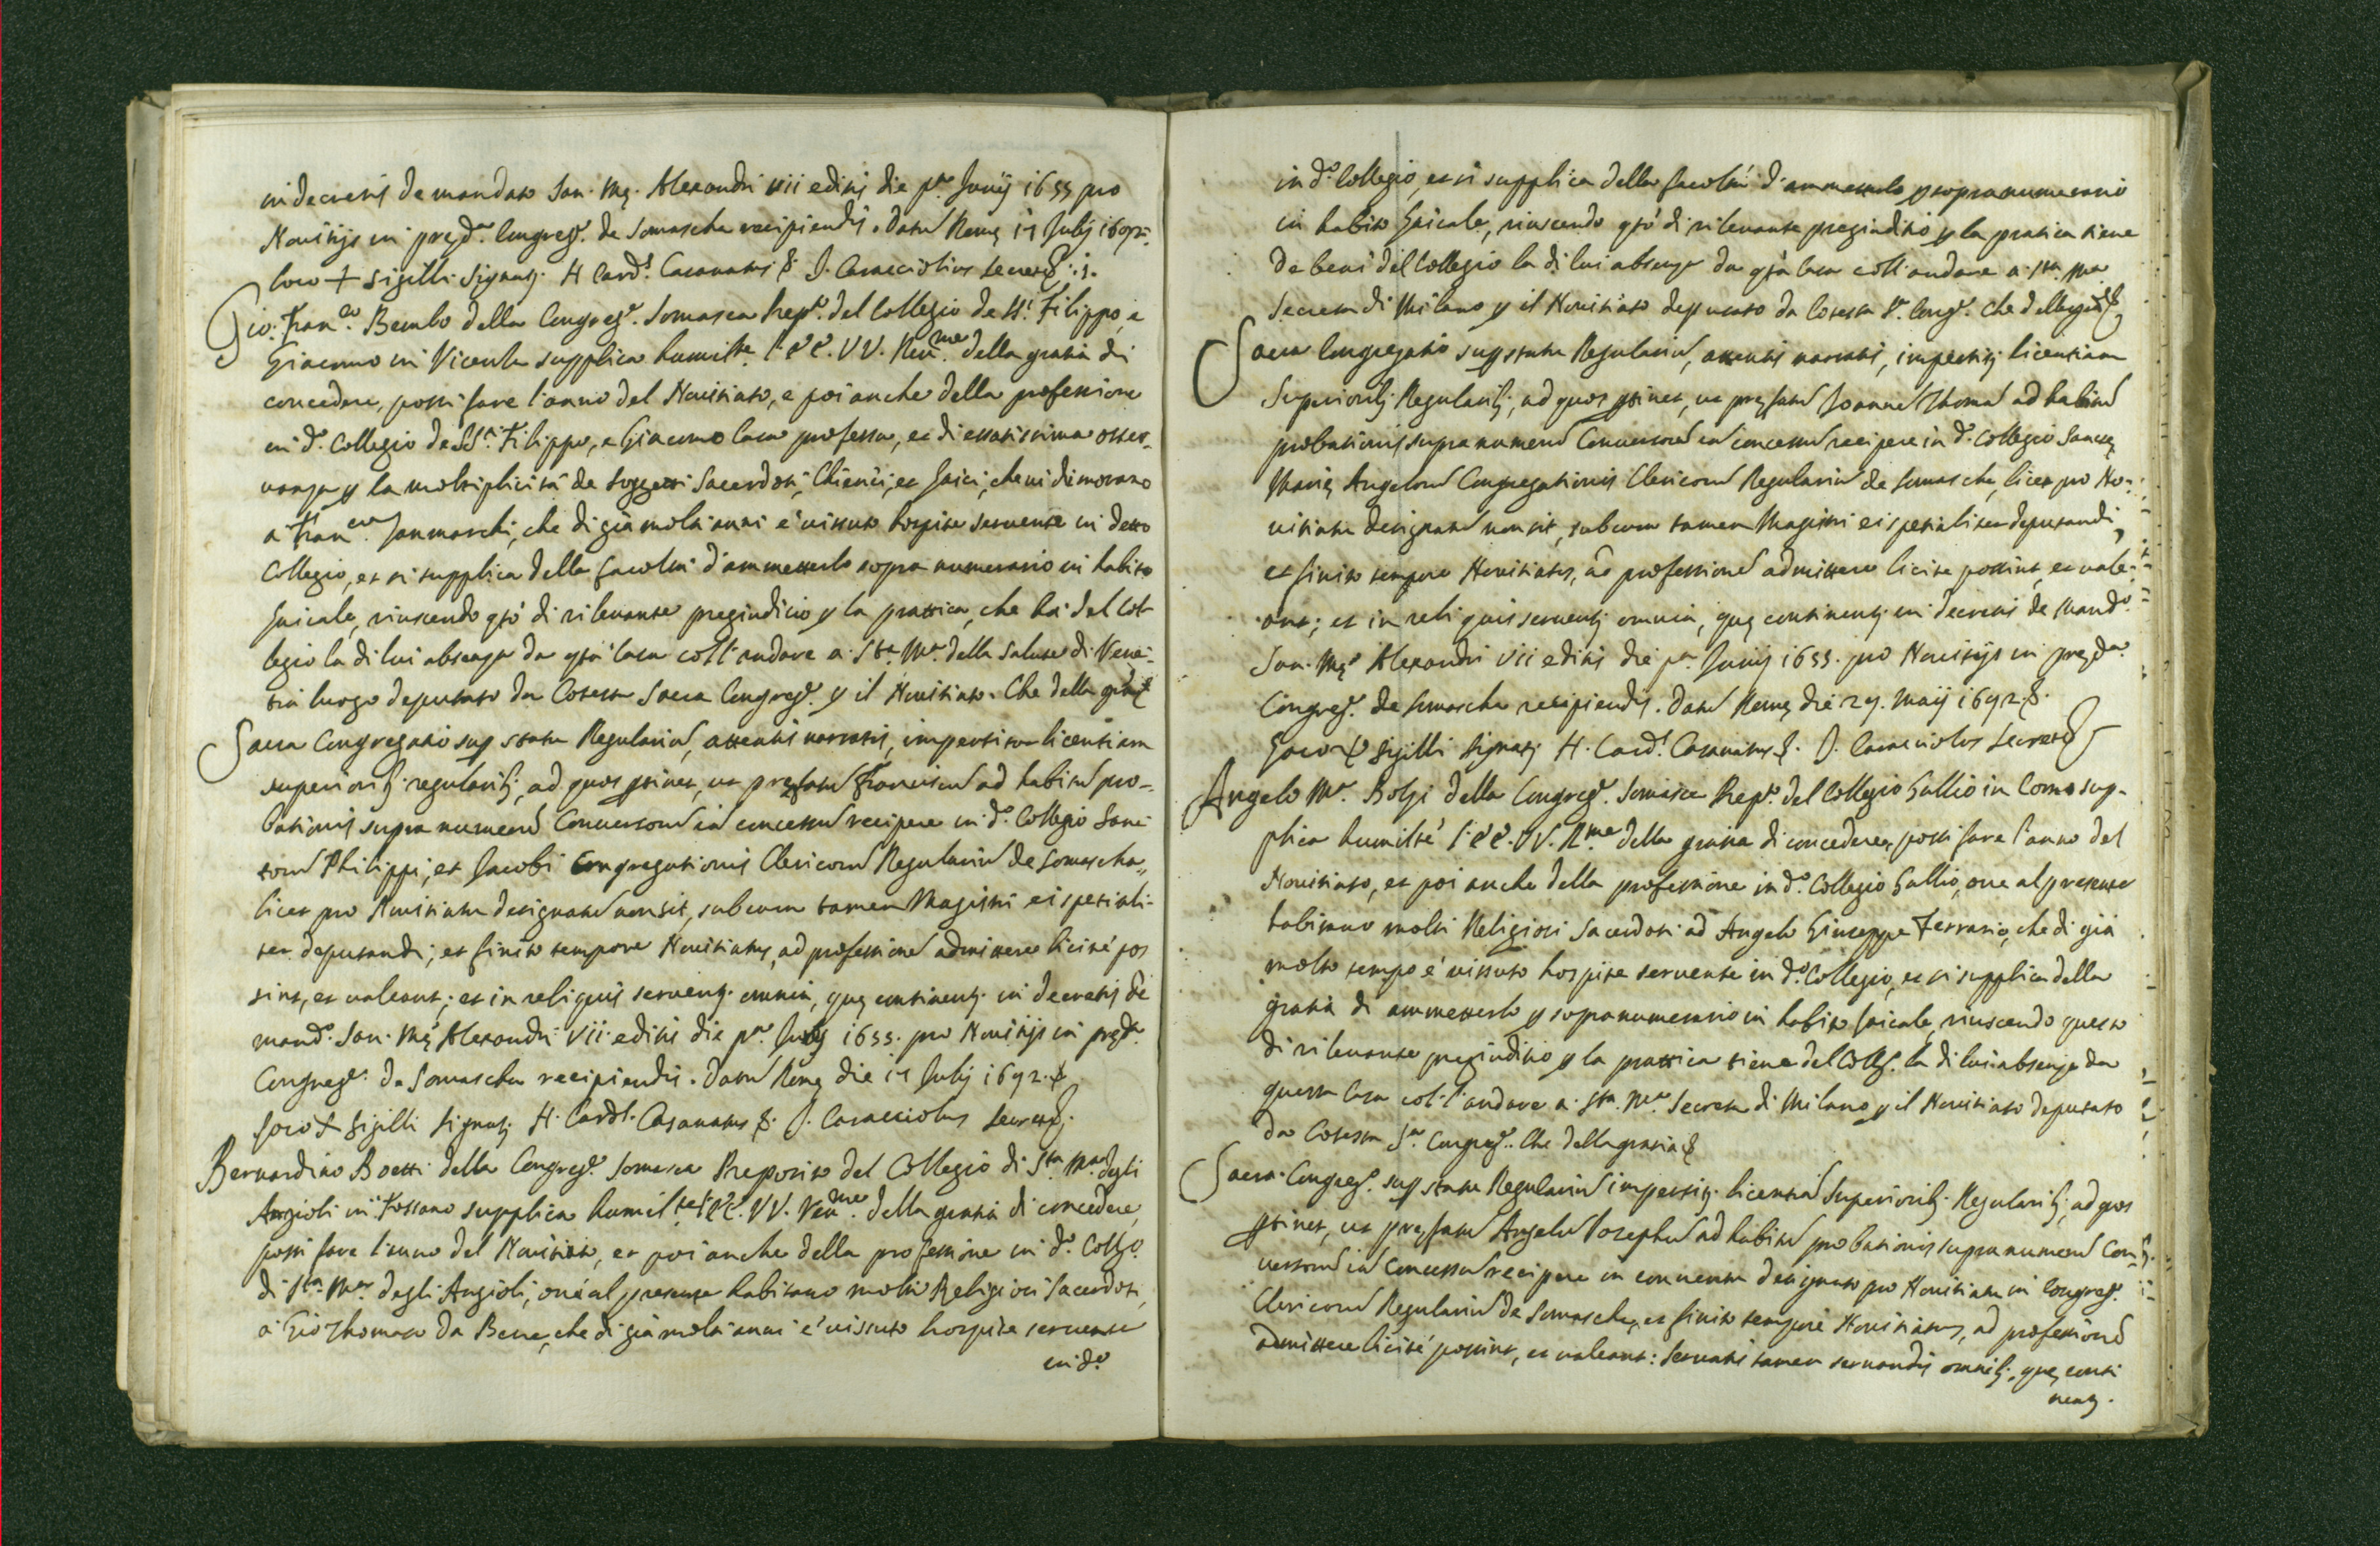 in decretis de mandato San. Mę. Alexandri VII editis die pa. Junij 1655 pro
Novitijs in pręda. Congreg. de Somascha recipiendis. Datu Romę 11 Julij 1692.
loco + sigilli Signatj. H Card. Casanatus &. J. Caracciolus Secret
Gio: Franco. Bembo della Congreg. Somasca Prepto. del Collegio de SSi. Filippo, e
Giacomo in Vicenza supplica humilte. l'EE. VV. Revme. della gratia di
concedere, possi fare l'anno del Novitiato, e poi anche della professione
in do. Collegio de SSi. Filippo, e Giacomo Casa professa, et di esatissima osser-
vanza p la moltiplicità de Soggetti Sacerdoti, Chierici, et Laici, che vi dimorano
a Franco. Sanmarchi, che di già molti anni è vissuto hospite servente in detto
Collegio, et si supplica della facoltà d'ammetterlo sopra numerario in habito
Laicale, riuscendo qto. di rilevante pregiudicio p la prattica, che hà del Col-
legio la di lui absenza da qta. Casa coll'andare a Sta. Ma. della Salute di Vene-
tia luogo deputato da Cotesta Sacra Congrega. p il Novitiato. Che della gratia &
Sacra Congregatio sup statu Regulariu, attentis narratis, impertitur licentiam
superioribj regularibj, ad quos ptinet, ut pręfatu Franciscu ad habitu pro-
bationis supra numeru Conversoru iā concessu recipere in do. Collegio Sanc-
toru Philippi, et Jacobi Congregationis Clericoru Regulariu de Somascha,
licet pro Novitiatu designatu non sit, sub cura tamen Magistri ei spetiali-
ter deputandi; et finito tempore Novitiatus, ad professione admittere licitè pos
sint, et valeant; et in reliquis serventj. omnia, quę continentj. in decretis de
mando. San. Mę. Alexandri VII. editis die pa. Junij 1655. pro Novitijs in pręda.
Congrega. de Somascha recipiendis. Datu Romę die 11 Julij 1692. &
Loco + Sigilli Signatj. H. Card. Casanatus &. J. Caracciolus Secret
Bernardino Boetti della Congrega. Somasca Preposito del Collegio di Sta. Ma. degli
Angioli in Fossano supplica humilte. l'EE. VV. Revme. della gratia di concedere,
possi fare l'anno del Novitiato, et poi anche della professione in do. Collo.
di Sta. Ma. degli Angioli, ove al presente habitano molti Religiosi Sacerdoti,
a Gio Thomaso Da Bene, che di già molti anni è vissuto hospite servente
in do.
in do. Collegio, et si supplica della facoltà d'ammetterlo p sopranumerario
in habito Laicale, riuscendo qto. di rilevante pregiuditio p la pratica tiene
de beni del Collegio la di lui absenza da qta. Casa coll'andare a Sta. Ma.
Secreta di Milano p il Novitiato deputato da Cotesta Sa. Congo. Che della gratia &
Sacra Congregatio sup statu Regulariu, attentis narratis, impertitj. licentiam
Superioribj Regularibj, ad quos ptinet, ut pręfatu Joanne Thoma ad habitu
probationis supra numeru Conversoru iā concessu recipere in do. Collegio Sanctę
Marię Angeloru Congregationis Clericoru Regulariu de Somascha, licet pro No-
vitiatu designatu non sit, sub cura tamen Magistri ei spetialiter deputandi,
et finito tempore Novitiatus, ad professione admittere licite possint, et vale-
ant; et in reliquis serventj. omnia, quę continentj. in decretis de mando.
San. Mę. Alexandri VII editis die pa. Junij 1655. pro Novitijs in pręda.
Congrega. de Somascha recipiendis. Datu Romę die 29. Maij 1692. &.
Loco + Sigilli Signatj. H. Card. Casanatus &. J. Caracciolus Secret
Angelo Ma. Bolzi della Congrega. Somasca Prepto. del Collegio Gallio in Como sup-
plica humiltè l'EE. VV. Rme. della gratia di concedere, possi fare l'anno del
Novitiato, et poi anche della professione in do. Collegio Gallio, ove al presente
habitano molti Religiosi Sacerdoti ad Angelo Giuseppe Ferrario, che di già
molto tempo è vissuto hospite servente in do. Collegio, et si supplica della
gratia di ammetterlo p sopranumerario in habito Laicale, riuscendo questo
di rilevante pregiuditio p la prattica tiene del Colleg. la di lui absenza da
questa Casa col l'andare a Sta. Ma. Secreta di Milano p il Novitiato deputato
da Cotesta Sa. Congreg. Che della gratia &
Sacra Congrego. sup statu Regulariu impertitj. licentia Superioribj. Regularibj, ad quos
ptinet, ut pręfatu Angelu Josephu ad habitu probationis supra numeru Con-
versoru iā concessu recipere in conventu designato pro Novitiatu in Congrega.
Clericoru Regulariu de Somascha, et finito tempore Novitiatus, ad professione
admittere licitè possint, et valeant: servatis tamen servandis omnibj., quę conti
nentj.